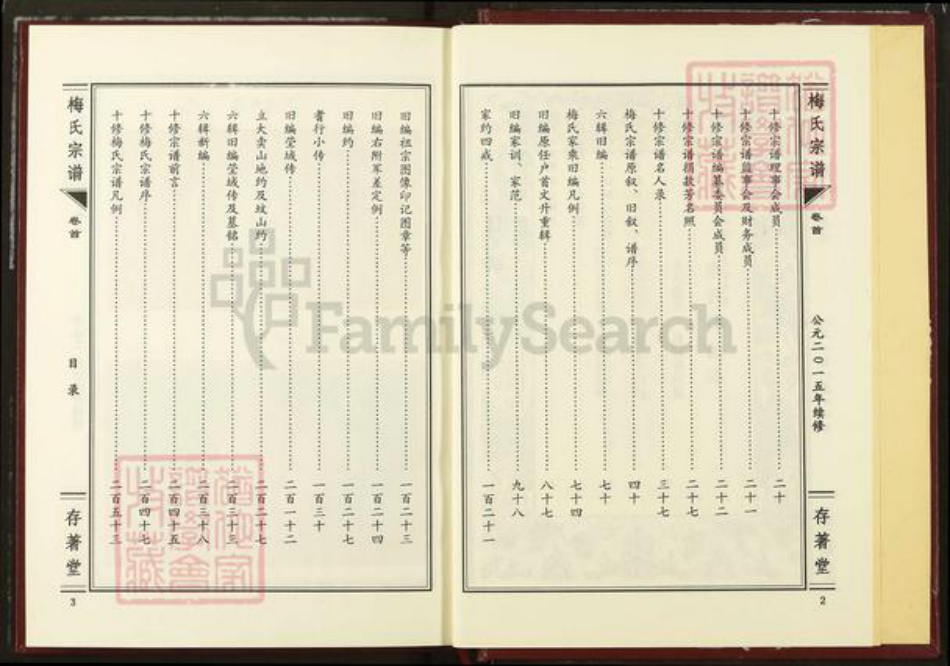 梅氏宗谱
卷首
公元二〇一五年续修
存著堂
2
十修宗谱理事会成员 二十
十修宗谱监事会及财务成员 二十一
十修宗谱编纂委员会成员 二十二
十修宗谱捐款芳名照 二十七
十修宗谱名人录 三十七
梅氏宗谱原叙、旧叙、谱序 四十
六辑旧编 七十
梅氏家乘旧编凡例 七十四
旧编原任户首文升重辑 八十七
旧编家训、家范 九十八
家约四戒 一百二十一
旧编祖宗图像印记图章等 一百二十三
旧编右附军差定例 一百二十四
旧编约 一百二十七
耆行小传 一百三十
旧编茔城传 二百一十二
立大卖山地约及坟山约 二百二十七
六辑旧编茔城传及墓铭 二百三十三
六辑新编 二百三十八
十修宗谱前言 二百四十五
十修梅氏宗谱序 二百四十七
十修梅氏宗谱凡例 二百五十三
梅氏宗谱
卷首
目录
存著堂
3
FamilySearch